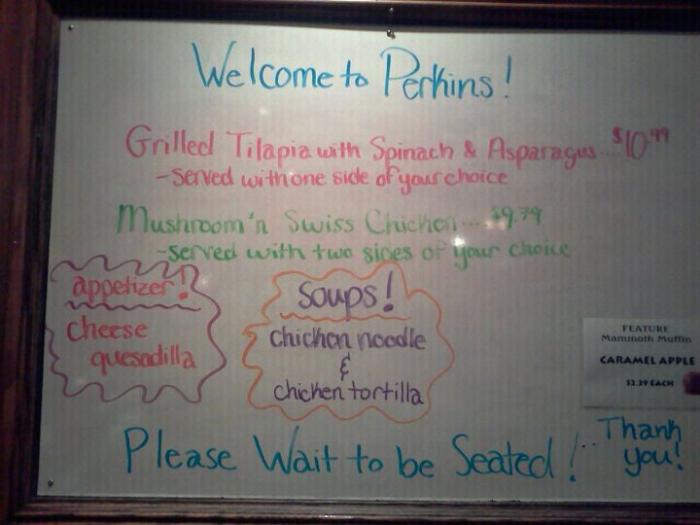 Welcome to Perkins!
Grilled Tilapia with Spinach & Asparagus... $10.99
-served with one side of your choice
Mushroom'n Swiss Chicken... $9.79
-served with two sides of your choice
appetizer!
cheese
quesadilla
Soups!
chicken noodle
&
chicken tortilla
FEATURE
Mammoth Muffin
CARAMEL APPLE
EACH
Please Wait to be Seated!...
Thank
you!